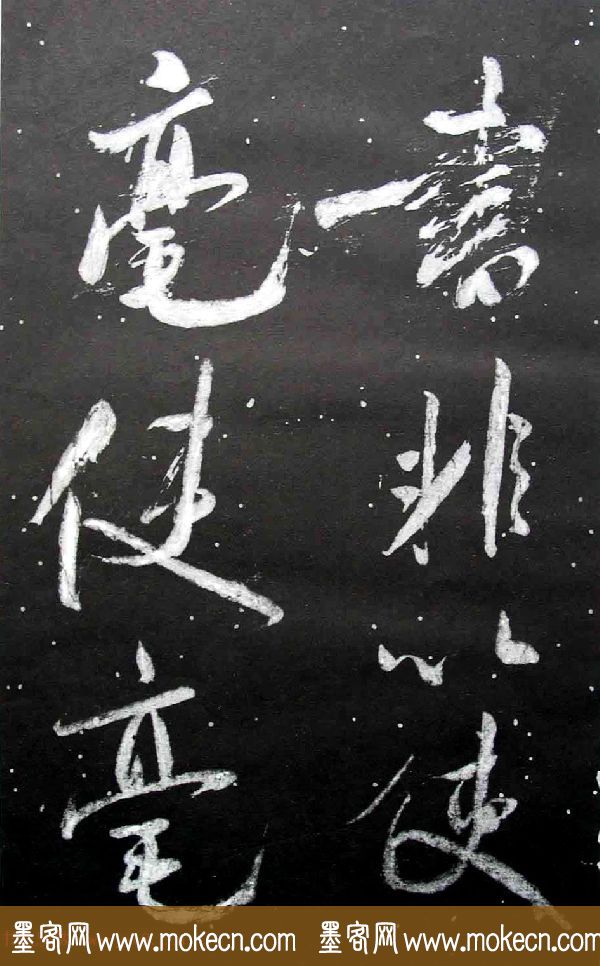 書非以使
毫使毫
墨客网 www.mokecn.com 墨客网 www.mokecn.com